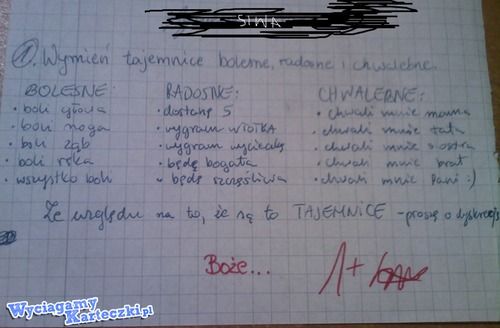 SIWA
1. Wymień tajemnice bolesne, radosne i chwalebne.
BOLESNE: RADOSNE: CHWALEBNE:
• boli głowa • dostanę 5 • chwali mnie mama
• boli noga • wygram WIOTKA • chwali mnie tata
• boli ząb • wygram wycieczkę • chwali mnie siostra
• boli ręka • będę bogata • chwali mnie brat
• wszystko boli • będę szczęśliwa • chwali mnie Pani :)
Ze względu na to, że są to TAJEMNICE - proszę o dyskrecję
Boże... 1+
Wyciągamy
Karteczki.pl